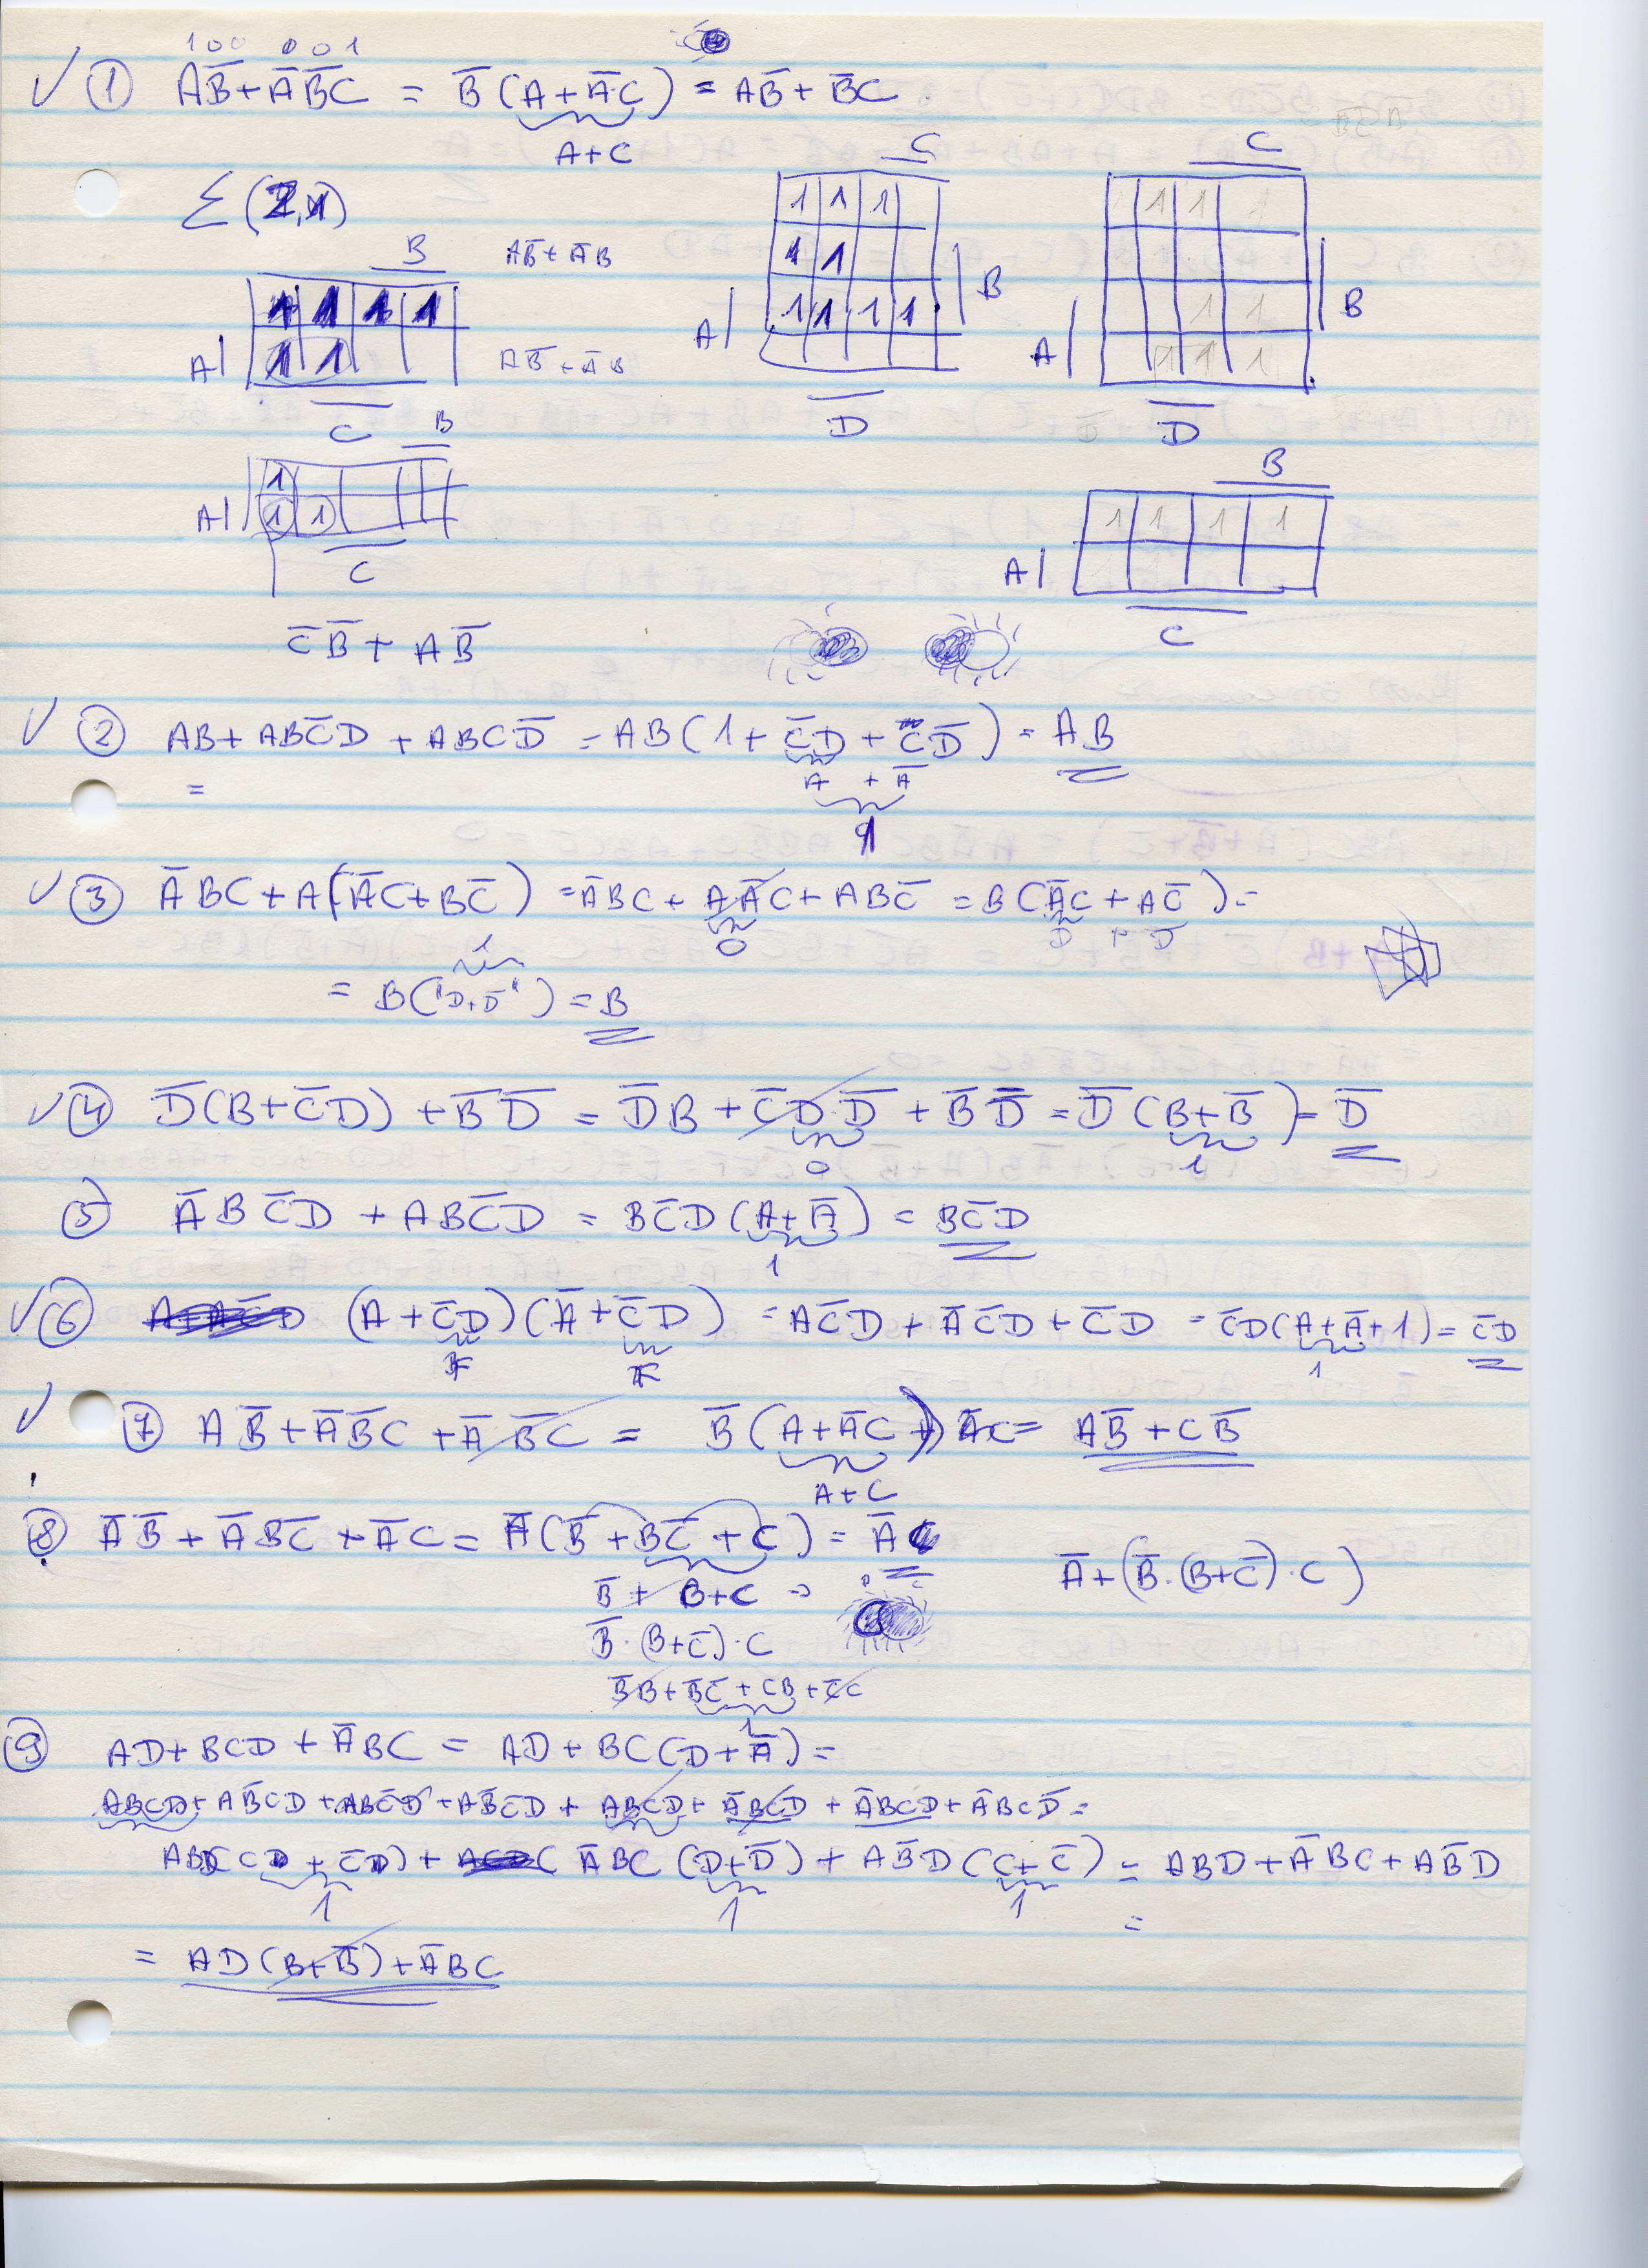 1 0 0 0 0 1
√ ① AB̅ + A̅B̅C = B̅(A + A̅·C) = AB̅ + B̅C
A+C
Σ(2,1)
C C
B AB̅ + A̅B 1 1 1 1 1
1 1 B
1 1 1 1 A 1 1 1 1 1 1 B
A 1 1 AB̅ + A̅B A 1 1 1
C D D
B B
1 1 1 1 1
A 1 1 A
C C
C̅B̅ + AB̅
√ ② AB + ABC̅D + ABCD̅ = AB(1 + C̅D + CD̅) = AB
= A + A̅
1
√ ③ A̅BC + A(A̅C + BC̅) = A̅BC + AA̅C + ABC̅ = B(A̅C + AC̅) =
0 D + D̅
1
= B("D+D̅") = B
√ ④ D̅(B + C̅D) + B̅D̅ = D̅B + C̅D·D̅ + B̅D̅ = D̅(B + B̅) = D̅
0 1
⑤ A̅BC̅D + ABC̅D = BC̅D(A + A̅) = BC̅D
1
√ ⑥ (A + C̅D)(A̅ + C̅D) = AC̅D + A̅C̅D + C̅D = C̅D(A + A̅ + 1) = C̅D
F F 1
√ ⑦ AB̅ + A̅B̅C + A̅B̅C = B̅(A + A̅C) = AB̅ + CB̅
A+C
⑧ A̅B̅ + A̅BC̅ + A̅C = A̅(B̅ + BC̅ + C) = A̅ A̅ + (B̅·(B+C̅)·C)
B̅ + B+C
B̅·(B+C̅)·C
B̅B + B̅C̅ + CB + C̅C
1
⑨ AD + BCD + A̅BC = AD + BC(D + A̅) =
ABCD + AB̅CD + ABC̅D + AB̅C̅D + ABCD + A̅BCD + A̅BCD + A̅BCD̅ =
ABD(C + C̅) + A̅BC(D + D̅) + AB̅D(C + C̅) = ABD + A̅BC + AB̅D
1 1 1 =
= AD(B + B̅) + A̅BC